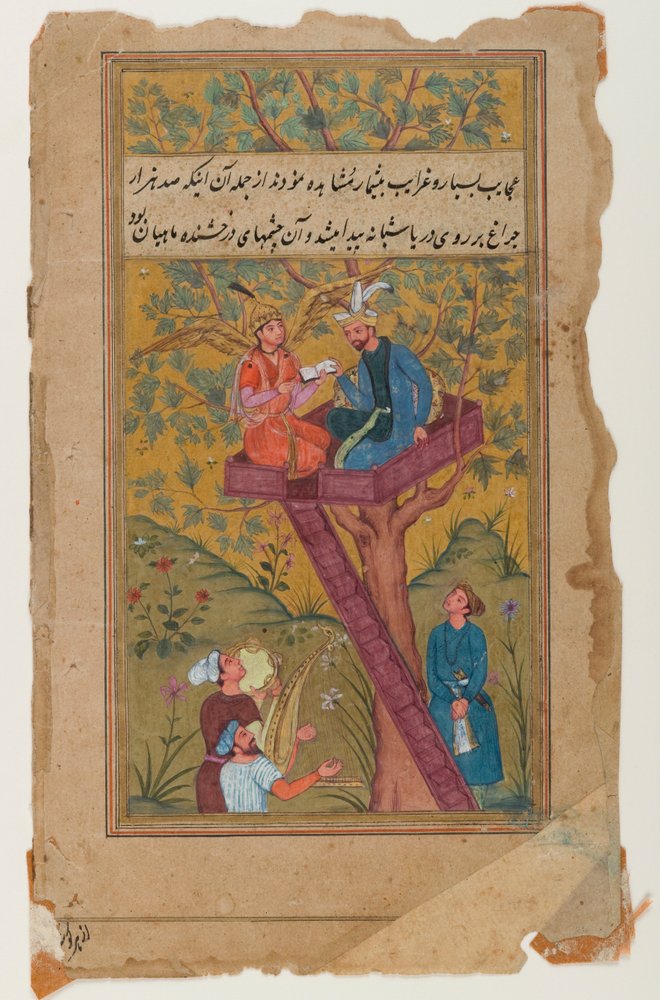 عجایب بسیار و غرایب بیشمار مشاهده نمودند از جمله آن اینکه صد هزار
چراغ بر روی دریا شبانه پیدا میشد و آن چشمهای درخشنده ماهیان بود